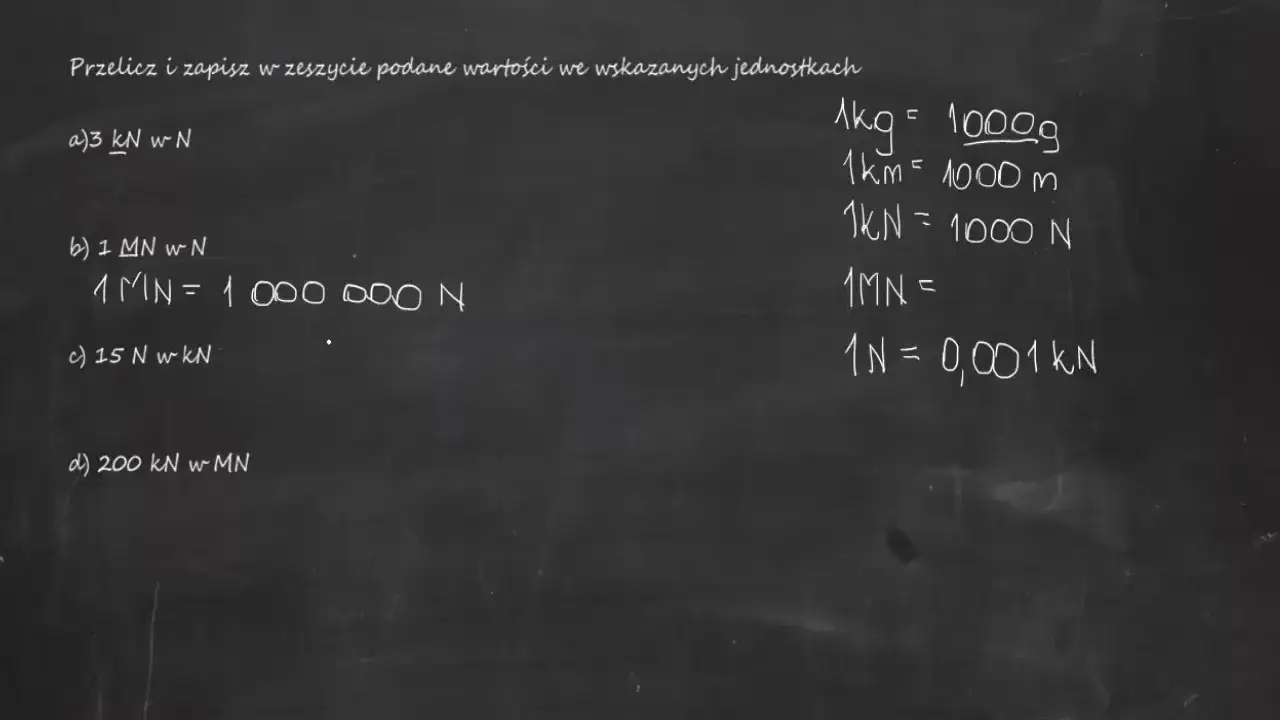 Przelicz i zapisz w zeszycie podane wartości we wskazanych jednostkach
a)3 kN w N
b) 1 MN w N
1 MN = 1 000 000 N
c) 15 N w kN
d) 200 kN w MN
1kg = 1000g
1km = 1000 m
1kN = 1000 N
1MN =
1N = 0,001 kN